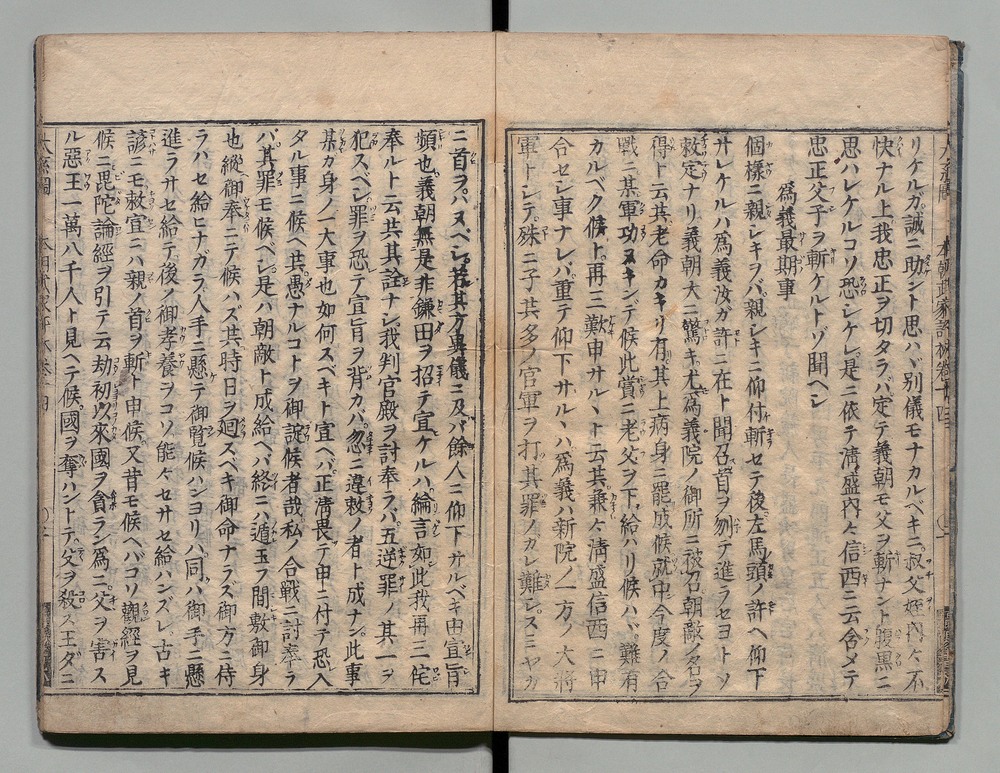 リケルガ誠ニ助ント思ハヾ別儀モナカルベキニ叔父姪内々不
快ナル上我忠正ヲ切タラバ定テ義朝モ父ヲ斬ナント腹黒ニ
思ハレケルコソ恐シケレ是ニ依テ清盛内々信西ニ云合メテ
忠正父子ヲ斬ケルトゾ聞ヘシ
為義最期事
個様ニ親シキヲバ親シキニ仰付斬セテ後左馬頭ノ許ヘ仰下
サレケルハ為義汝ガ許ニ在ト聞召首ヲ刎テ進ラセヨトソ
敕定ナリ義朝大ニ驚キ尤為義院ノ御所ニ被召朝敵ノ名ヲ
得ト云共老命カキリ有其上病身ニ罷成候就中今度ノ合
戦ニ某軍功ヌキンデ候此賞ニ老父ヲ下給ハリ候ハヾ難有
カルベク候ト再三歎申サルヽト云共兼々清盛信西ニ申
合セシ事ナレバ重テ仰下サルヽハ為義ハ新院ノ一方ノ大将
軍トシテ殊ニ子共多ノ官軍ヲ打其罪ノカレ難シスミヤカ
ニ首ヲハヌベシ若其方異儀ニ及バ餘人ニ仰下サルベキ由宣旨
頻也義朝無是非鎌田ヲ招テ宣ケルハ綸言如此我再三侘
奉ルト云共其詮ナシ我判官殿ヲ討奉ラバ五逆罪ノ其一ヲ
犯スベシ罪ヲ恐テ宣旨ヲ背カバ忽ニ違敕ノ者ト成ナン此事
某カ身ノ一大事也如何スベキト宣ヘバ正清畏テ申ニ付テ恐入
タル事ニ候ヘ共愚ナルコトヲ御諚候者哉私ノ合戦ニ討奉ラ
バ其罪モ候ベシ是ハ朝敵ト成給ヘバ終ニハ遁玉フ間敷御身
也縦御奉ニテ候ハズ共時日ヲ廻スベキ御命ナラズ御方ニ侍
ラハセ給ヒナガラ人手ニ懸テ御覧候ハンヨリハ同ハ御手ニ懸
進ラサセ給テ後ノ御孝養ヲコソ能々セサセ給ハンズレ古キ
諺ニモ敕宣ニハ親ノ首ヲ斬ト申候又昔モ候ヘバコソ觀經ヲ見
候ニ毘陀論經ヲ引テ云劫初以來國ヲ貪ラン為ニ父ヲ害ス
ル惡王一萬八千人ト見ヘテ候國ヲ奪ハントテ父ヲ殺ス王ダニ